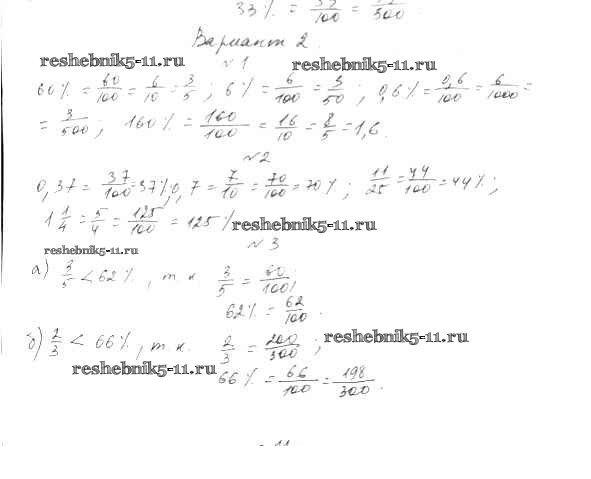 33% = 33/100 = 
/300.
Вариант 2.
reshebnik5-11.ru
№1
reshebnik5-11.ru
60% = 60/100 = 6/10 = 3/5; 6% = 6/100 = 3/50; 0,6% = 0,6/100 = 6/1000 =
= 3/500; 160% = 160/100 = 16/10 = 8/5 = 1,6.
№2
0,37 = 37/100 = 37%; 0,7 = 7/10 = 70/100 = 70%; 11/25 = 44/100 = 44%;
1 1/4 = 5/4 = 125/100 = 125%
reshebnik5-11.ru
№3
reshebnik5-11.ru
а) 3/5 < 62%, т.к. 3/5 = 60/100;
62% = 62/100.
б) 2/3 < 66%, т.к. 2/3 = 200/300;
reshebnik5-11.ru
reshebnik5-11.ru
66% = 66/100 = 198/300.